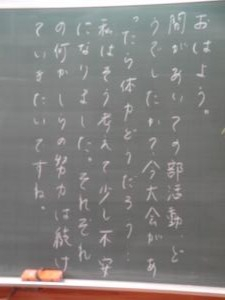 おはよう。
間があいての部活動、ど
うでしたか?今大会があ
ったら体力どうだろう…
私はそう考えて少し不安
になりました。それぞれ
の何かしらの努力は続け
ていきたいですね。